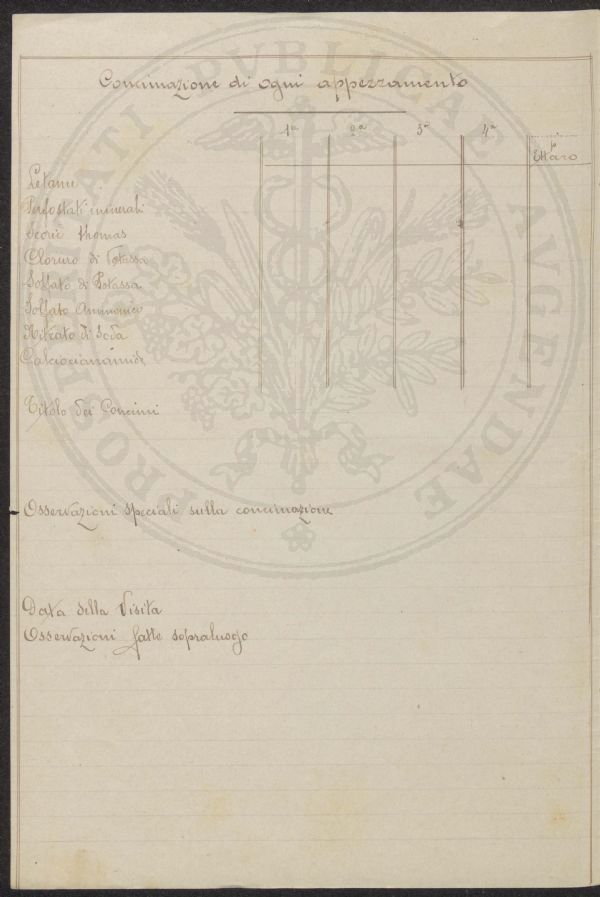 Concimazione di ogni appezzamento
1ª 2ª 3ª 4ª
pr Ettaro
Letame
Perfosfati minerali
Scorie Thomas
Cloruro di Potassa
Solfato di Potassa
Solfato Ammonico
Nitrato di Soda
Calciocianamide
Titolo dei Concimi
Osservazioni speciali sulla concimazione
Data della Visita
Osservazioni fatte sopraluogo
PROSPERITATI PUBLICAE AVGENDAE